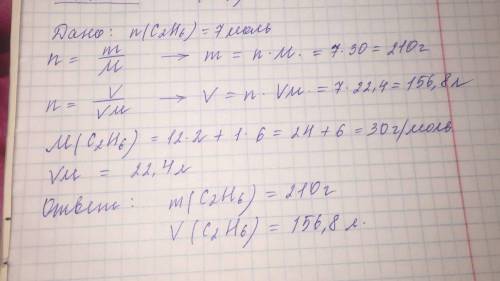 Дано: n(C₂H₆) = 7 моль
n = m/M → m = n · M. = 7 · 30 = 210 г
n = V/Vм → V = n · Vм. = 7 · 22,4 = 156,8 л
M(C₂H₆) = 12 · 2 + 1 · 6 = 24 + 6 = 30 г/моль
Vм = 22,4 л
Ответ: m(C₂H₆) = 210 г
V(C₂H₆) = 156,8 л.